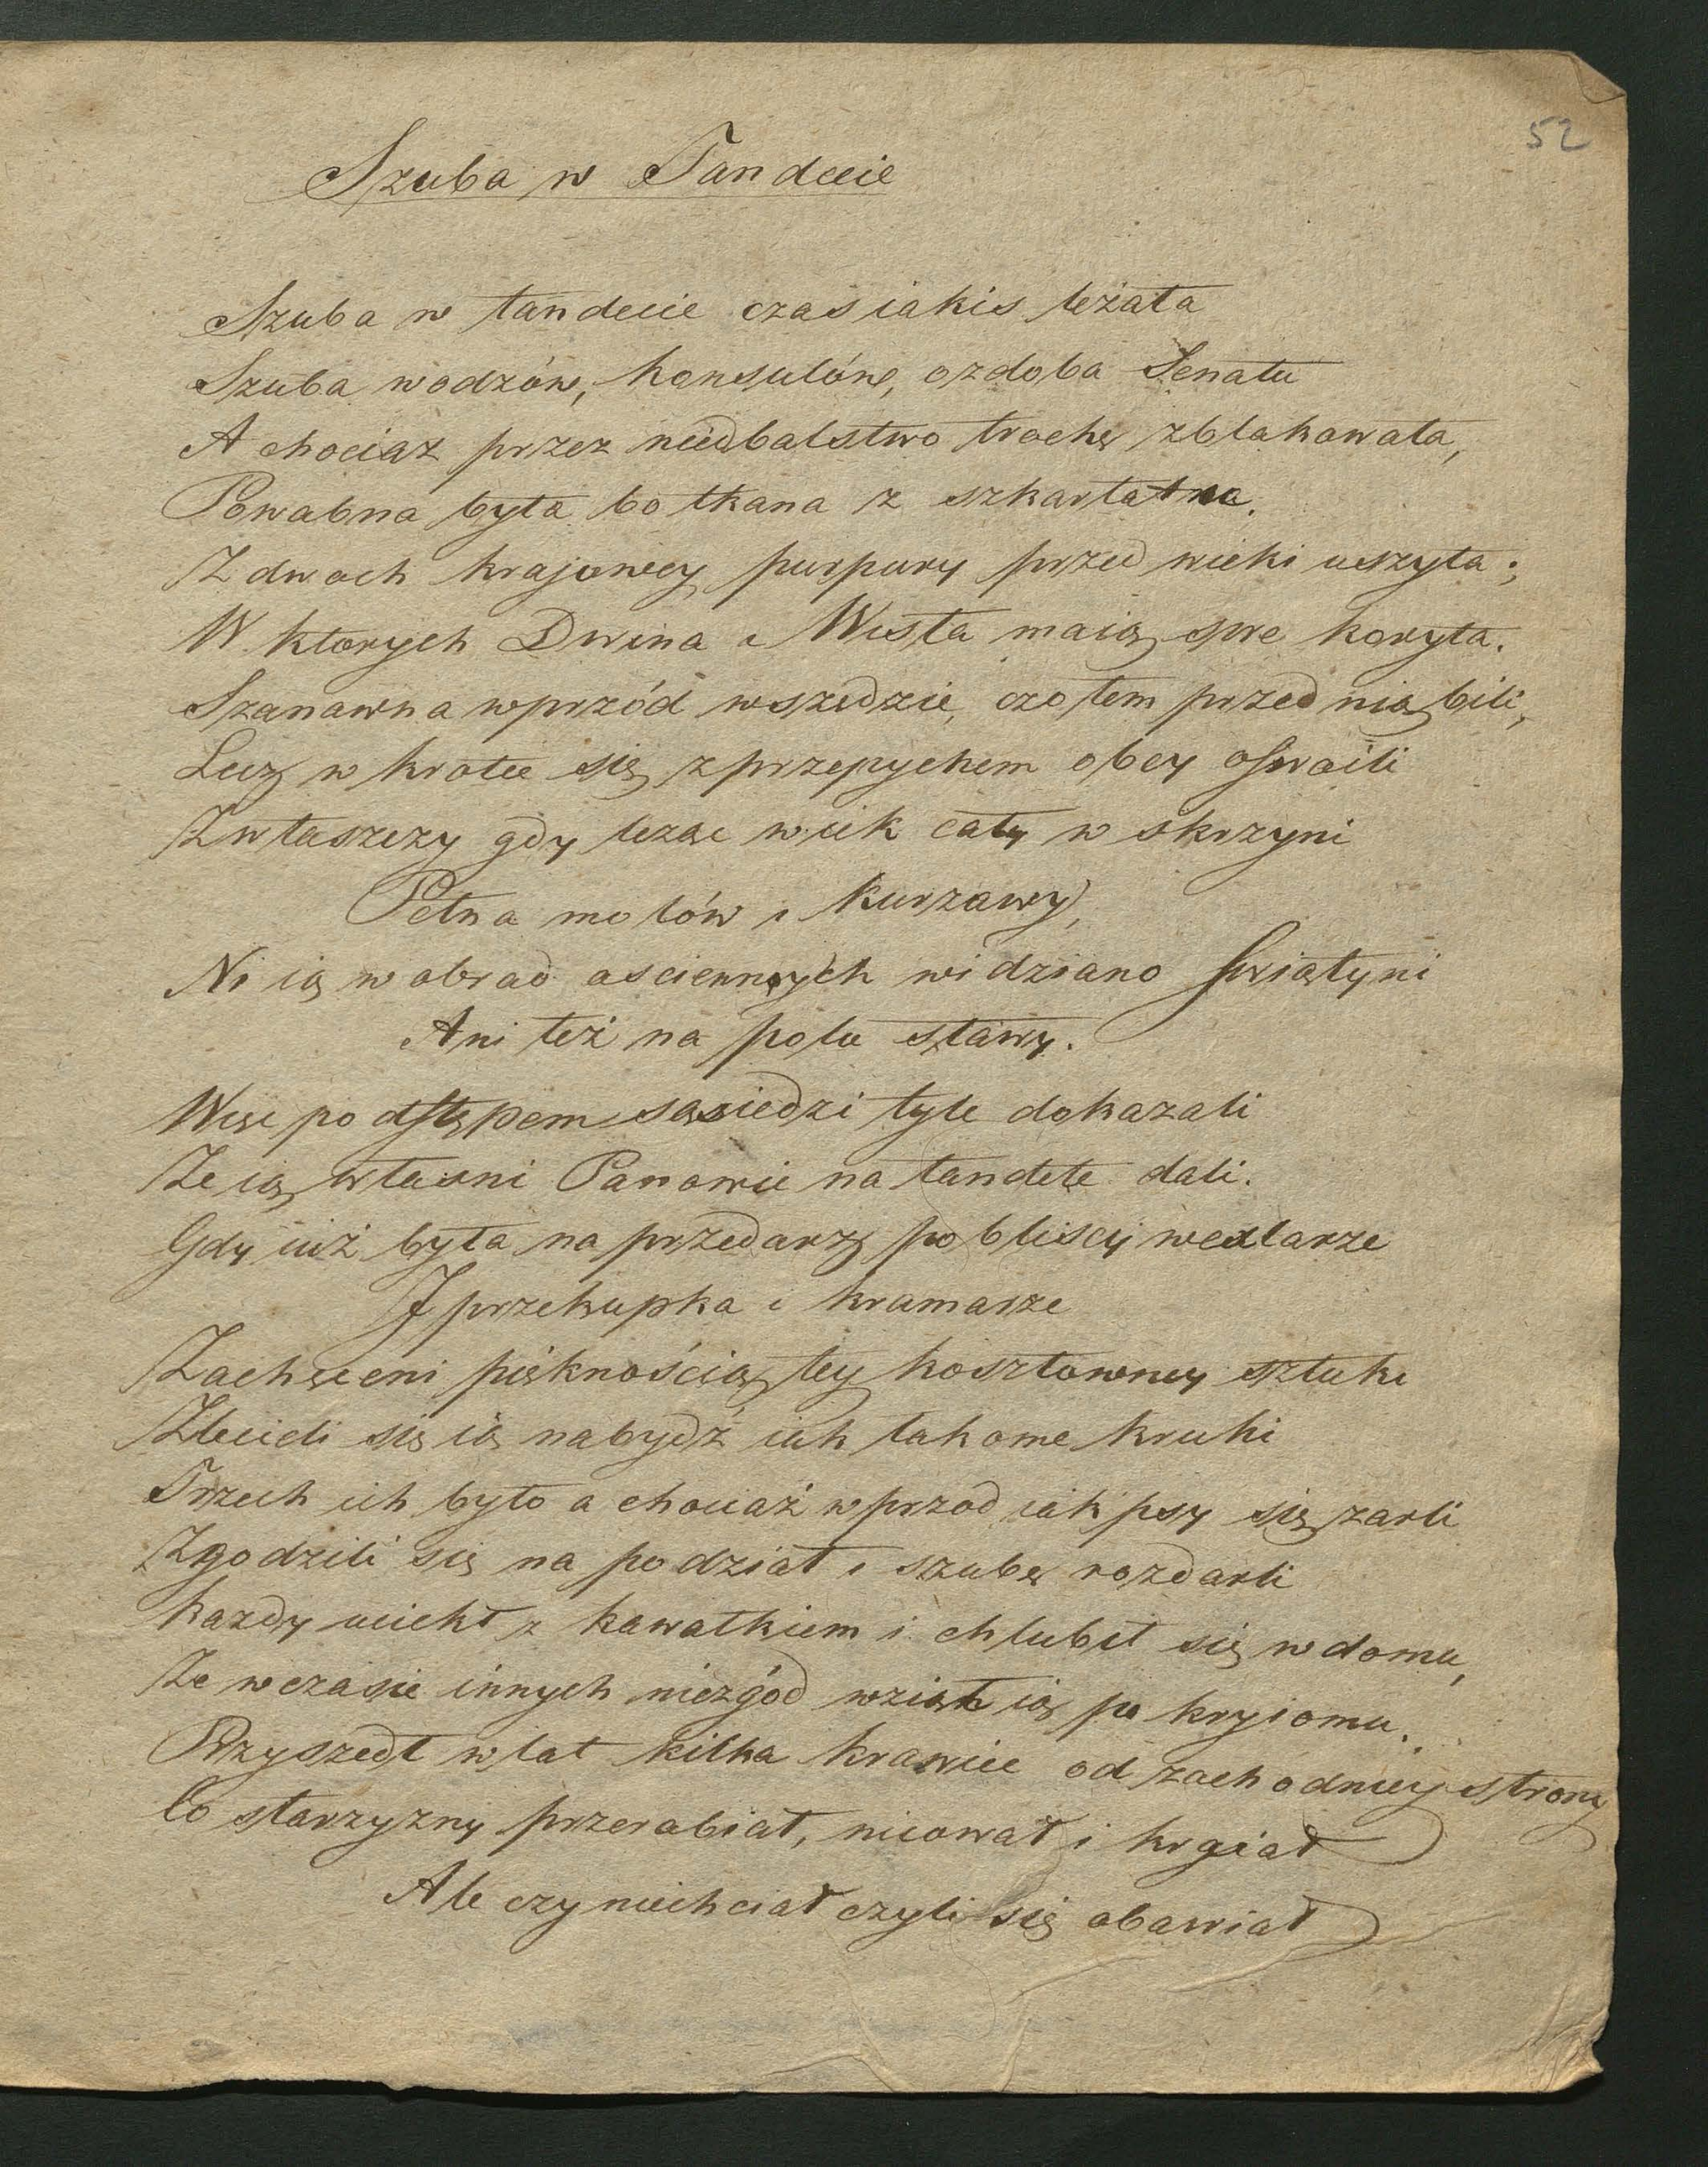 52
Szuba w Tandecie
Szuba w tandecie czas iakis leżała
Szuba wodzów, konsulów, ozdoba Senatu
A chociaz przez niedbalstwo trochę zblakowała,
Powabna była bo tkana z szkarłatna.
Z dwoch krajowey purpury przed wieki uszyta;
W ktorych Dwina i Wisła maią swe koryta.
Szanawna wprzód wszedzie, czołem przed nią bili,
Lecz w krotce się z przepychem obcy oswoili
Zwłaszczy gdy leząc wiek cały w skrzyni
Pełna molów i kurzawy,
Ni ią w obrad osciennych widziano swiątyni
Ani też na polu sławy.
Więc podstępem sąsiedzi tyle dokazali
Ze ią własni Panowie na tandetę dali.
Gdy iuż była na przedarz pobliscy wexlarze
I przekupka i kramarze
Zachęceni pięknością tey kosztowney sztuki
Zlecieli się ią nabydź iak łakome kruki
Trzech ich było a chociaż wprzod iak psy się zarli
Zgodzili się na podział i szubę rozdarli
Kazdy uciekł z kawałkiem i chlubił się w domu,
Ze w czasie innych niezgód wziął ią po kryiomu.
Przyszedł w lat kilka krawiec od zachodniey strony
Co starzyzny przerabiał, nicował i krajał
Ale czy niechciał czyli się obawiał